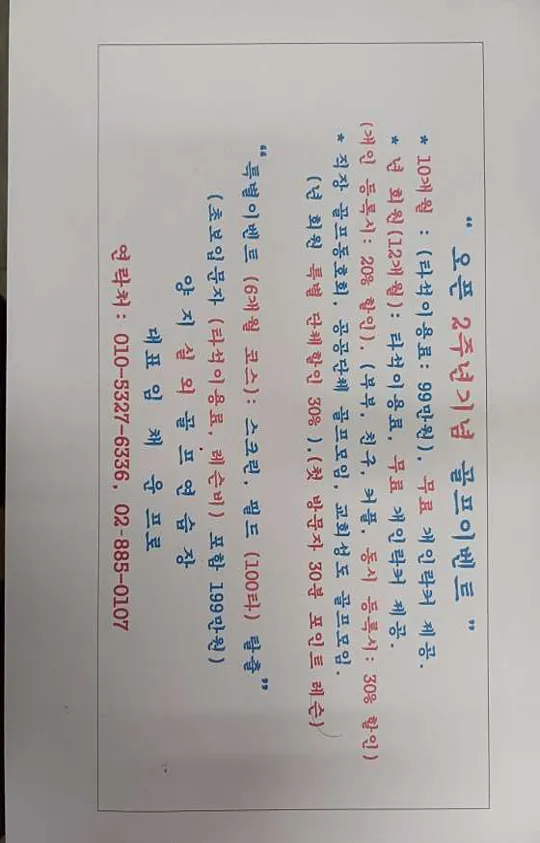 “ 오픈 2주년기념 골프이벤트 ”
* 10개월 : (타석이용료: 99만원), 무료 개인락커 제공.
* 년 회원(12개월): 타석이용료, 무료 개인락커 제공.
(개인 등록시: 20% 할인). (부부, 친구, 커플, 동시 등록시: 30% 할인)
* 직장 골프동호회, 공공단체 골프모임, 교회성도 골프모임.
(년 회원 특별 단체할인 30% ).(첫 방문자 30분 포인트 레슨)
“ 특별이벤트 (6개월 코스): 스크린, 필드 (100타) 탈출 ”
(초보입문자 (타석이용료, 레슨비) 포함 199만원)
양지 실외 골프연습장
대표 임채 운프로
연락처: 010-5327-6336, 02-885-0107